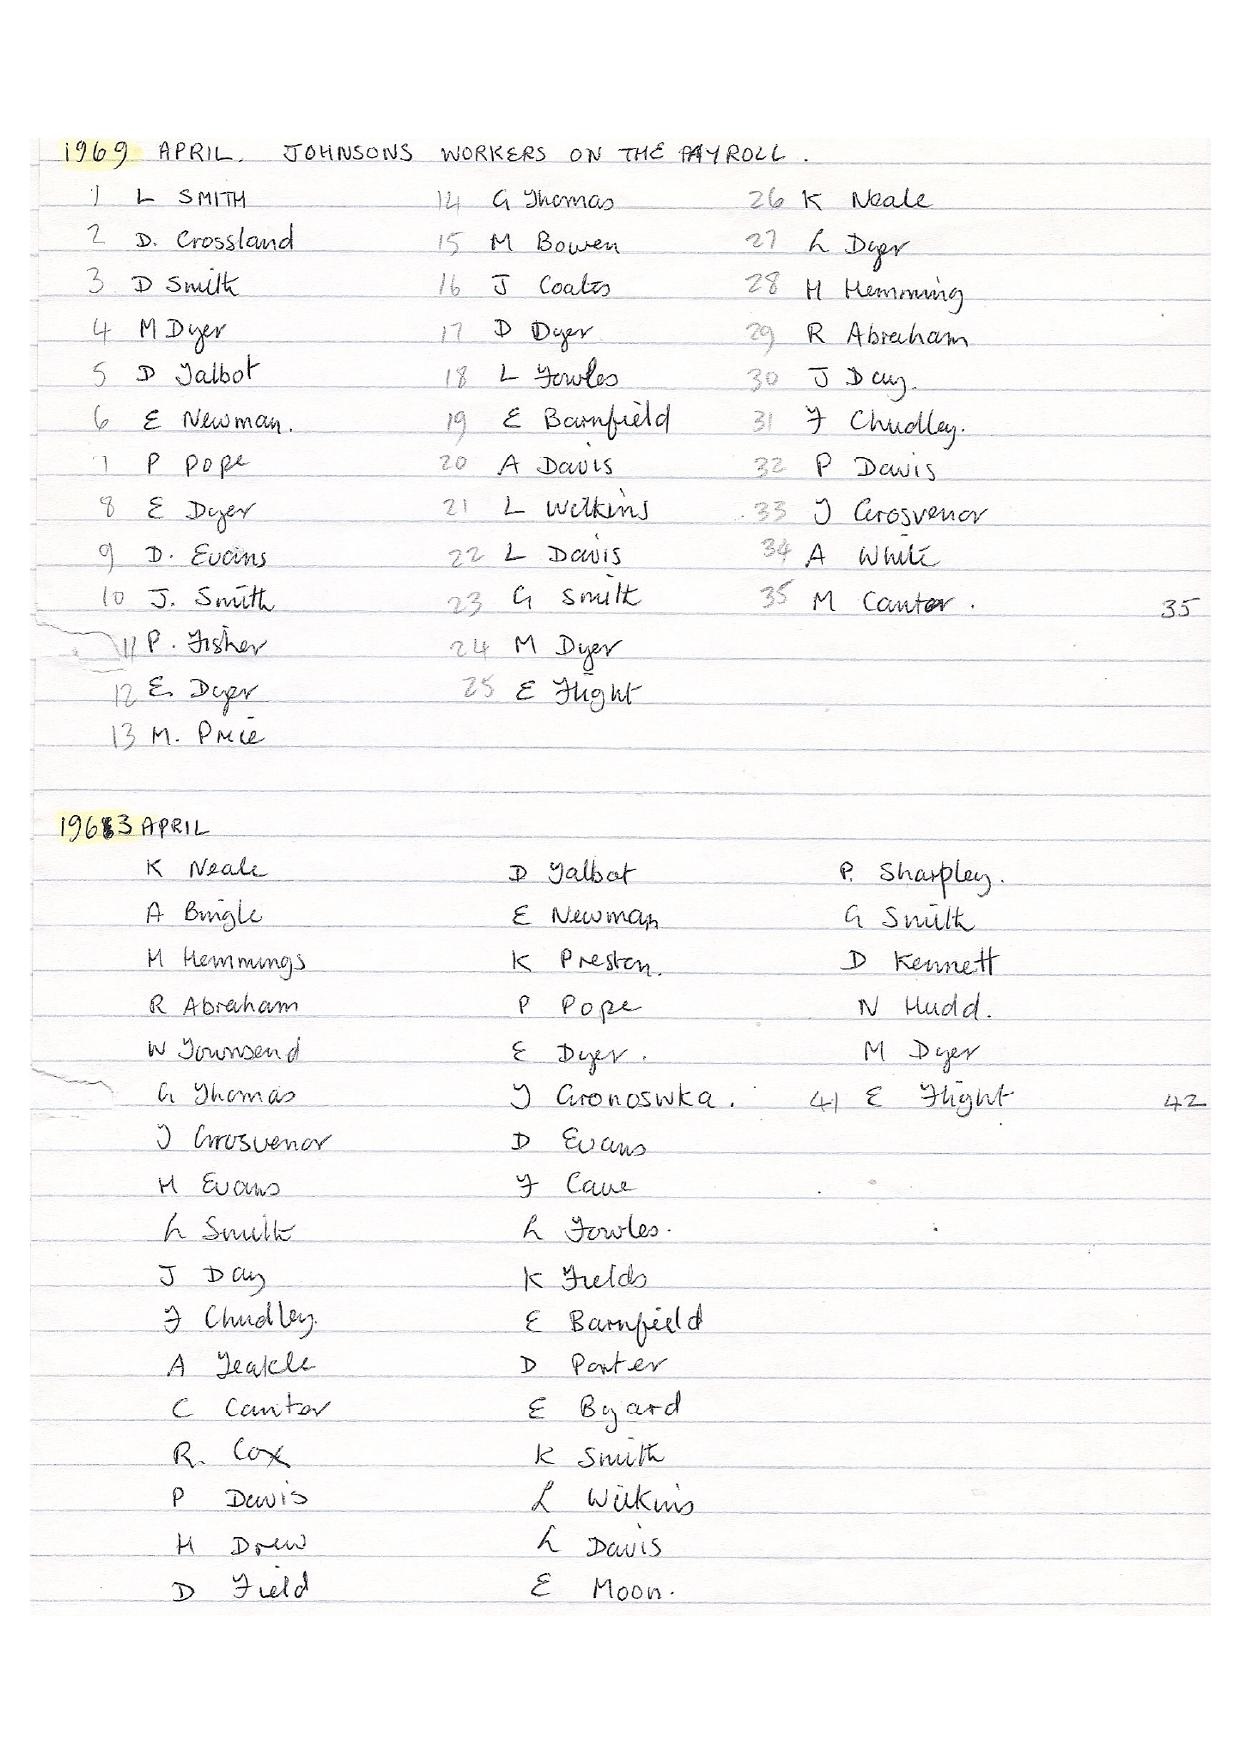 1969 APRIL. JOHNSONS WORKERS ON THE PAYROLL.
1 L SMITH
2 D. Crossland
3 D Smith
4 M Dyer
5 D Talbot
6 E Newman.
7 P Pope
8 E Dyer
9 D. Evans
10 J. Smith
11 P. Fisher
12 E. Dyer
13 M. Price
14 G Thomas
15 M Bowen
16 J Coates
17 D Dyer
18 L Fowles
19 E Barnfield
20 A Davis
21 L Wilkins
22 L Davis
23 G Smith
24 M Dyer
25 E Flight
26 K Neale
27 L Dyer
28 H Hemming
29 R Abraham
30 J Day.
31 F Chudley.
32 P Davis
33 J Grosvenor
34 A White
35 M Cantor.
35
1963 APRIL
K Neale
A Bingle
H Hemmings
R Abraham
W Townsend
G Thomas
J Grosvenor
H Evans
L Smith
J Day
F Chudley.
A Teakle
C Cantor
R. Cox
P Davis
H Drew
D Field
D Talbot
E Newman
K Preston.
P Pope
E Dyer.
J Gronoswka.
D Evans
F Cave
L Fowles.
K Fields
E Barnfield
D Porter
E Byard
K Smith
L Wilkins
L Davis
E Moon.
P. Sharpley.
G Smith
D Kennett
N Hudd.
M Dyer
41 E Flight
42